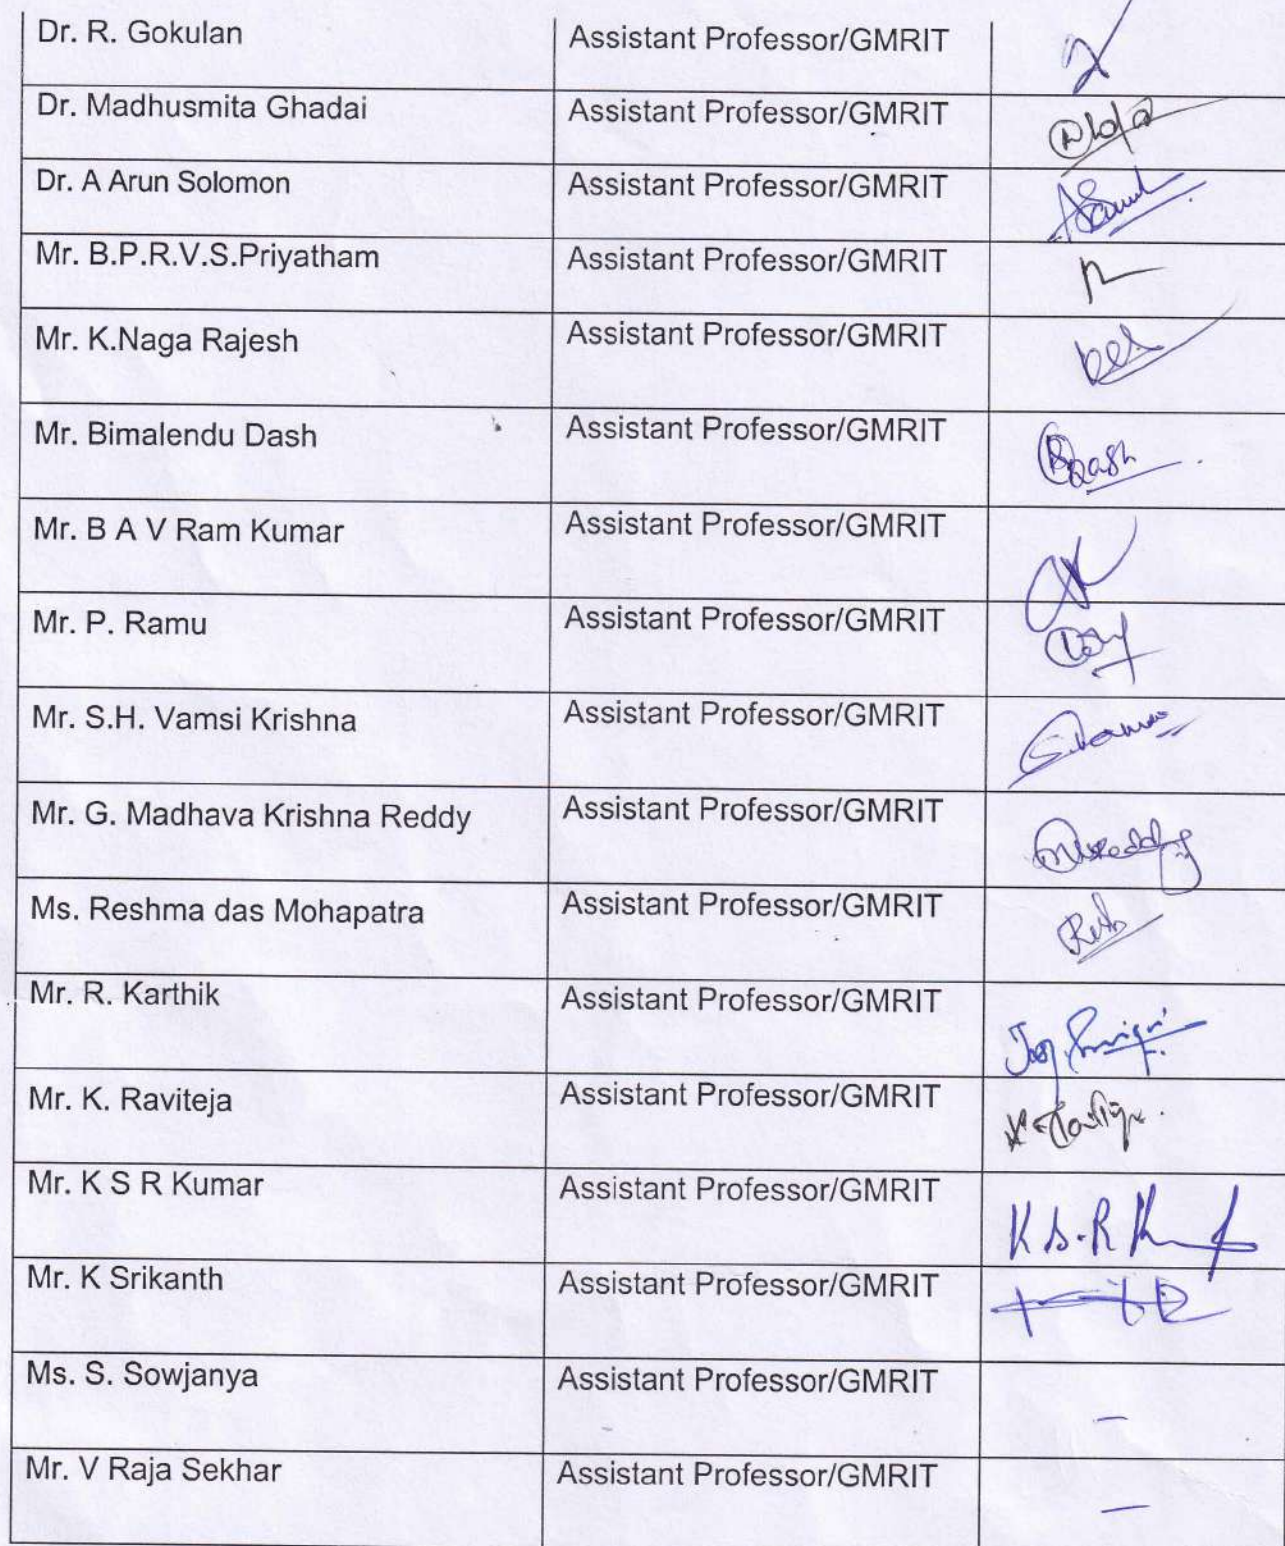 Dr. R. Gokulan Assistant Professor/GMRIT
Dr. Madhusmita Ghadai Assistant Professor/GMRIT
Dr. A Arun Solomon Assistant Professor/GMRIT
Mr. B.P.R.V.S.Priyatham Assistant Professor/GMRIT
Mr. K.Naga Rajesh Assistant Professor/GMRIT
Mr. Bimalendu Dash Assistant Professor/GMRIT
Mr. B A V Ram Kumar Assistant Professor/GMRIT
Mr. P. Ramu Assistant Professor/GMRIT
Mr. S.H. Vamsi Krishna Assistant Professor/GMRIT
Mr. G. Madhava Krishna Reddy Assistant Professor/GMRIT
Ms. Reshma das Mohapatra Assistant Professor/GMRIT
Mr. R. Karthik Assistant Professor/GMRIT
Mr. K. Raviteja Assistant Professor/GMRIT
Mr. K S R Kumar Assistant Professor/GMRIT K S.R
Mr. K Srikanth Assistant Professor/GMRIT
Ms. S. Sowjanya Assistant Professor/GMRIT –
Mr. V Raja Sekhar Assistant Professor/GMRIT –